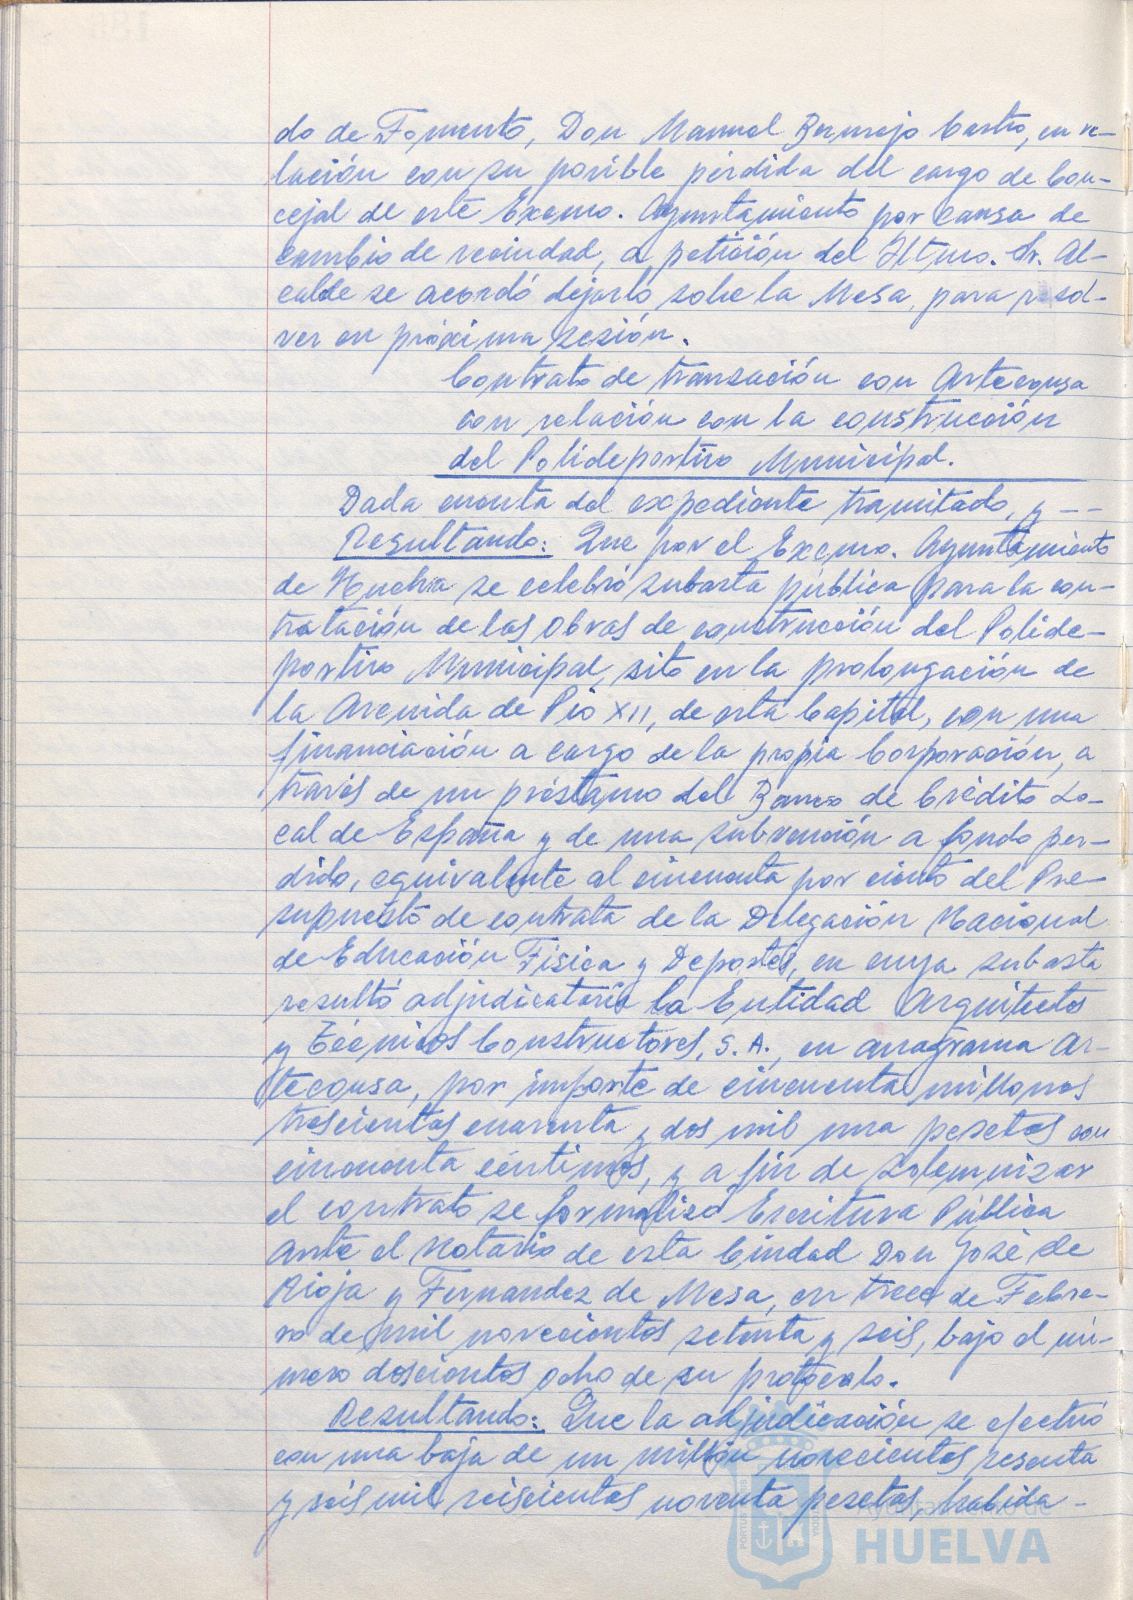 do de Fomento, Don Manuel Bermejo Castro, en re-
lación con su posible pérdida del cargo de Con-
cejal de este Excmo. Ayuntamiento por causa de
cambio de vecindad, a petición del Iltmo. Sr. Al-
calde se acordó dejarlo sobre la Mesa, para resol-
ver en próxima sesión.
Contrato de transación con Arteconsa
con relación con la construcción
del Polideportivo Municipal.
Dada cuenta del expediente tramitado, y ---
Resultando: Que por el Excmo. Ayuntamiento
de Huelva se celebró subasta pública para la con-
tratación de las obras de construcción del Polide-
portivo Municipal, sito en la prolongación de
la Avenida de Pio XII, de esta Capital, con una
financiación a cargo de la propia Corporación, a
través de un préstamo del Banco de Crédito Lo-
cal de España y de una subvención a fondo per-
dido, equivalente al cincuenta por ciento del Pre-
supuesto de contrata de la Delegación Nacional
de Educación Física y Deportes, en cuya subasta
resultó adjudicataria la Entidad Arquitectos
y Técnicos Constructores, S.A., en anagrama Ar-
teconsa, por importe de cincuenta millones
trescientas cuarenta y dos mil una pesetas con
cincuenta céntimos, y a fin de solemnizar
el contrato se formalizó Escritura Pública
ante el Notario de esta Ciudad Don José de
Rioja y Fernandez de Mesa, en trece de Febre-
ro de mil novecientos setenta y seis, bajo el nú-
mero doscientos ocho de su protocolo.
Resultando: Que la adjudicación se efectuó
con una baja de un millón novecientas sesenta
y seis mil seiscientas noventa pesetas, habida-
Ayuntamiento de
HUELVA